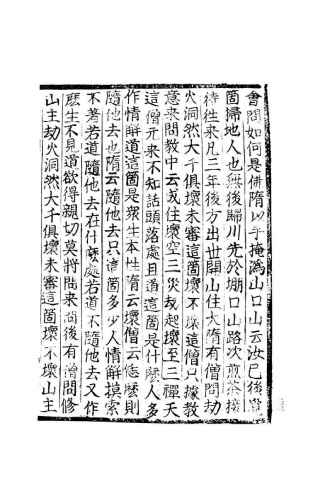 會問如何是佛隋以手掩溈山口山云汝已後覓
箇掃地人也無後歸川先於堋口山路次煎茶接
待往來凡三年後方出世開山住大隋有僧問劫
火洞然大千俱壞未審這箇壞不壞這僧只據教
意來問教中云成住壞空三災劫起壞至三禪天
這僧元來不知話頭落處且道這箇是什麼人多
作情解道這箇是衆生本性隋云壞僧云恁麽則
隨他去也隋云隨他去只這箇多少人情解摸索
不著若道隨他去在什麽處若道不隨他去又作
麽生不見道欲得親切莫將問來問後有僧問修
山主劫火洞然大千俱壞未審這箇壞不壞山主